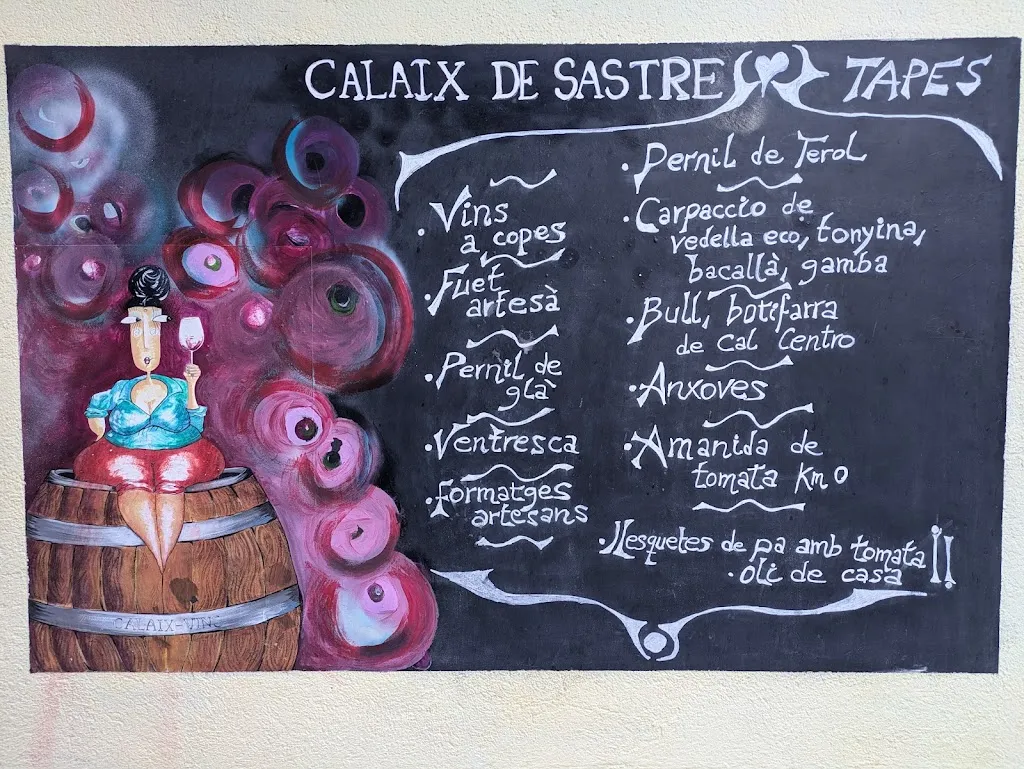 CALAIX DE SASTRE TAPES
· Vins
a copes
· Fuet
artesà
· Pernil de
glà
· Ventresca
· formatges
artesans
· Pernil de Terol
· Carpaccio de
vedella eco, tonyina,
bacallà, gamba
· Bull, botifarra
de Cal Centro
· Anxoves
· Amanida de
tomata Km 0
· llesquetes de pa amb tomata
· oli de casa !!
CALAIX-VINS